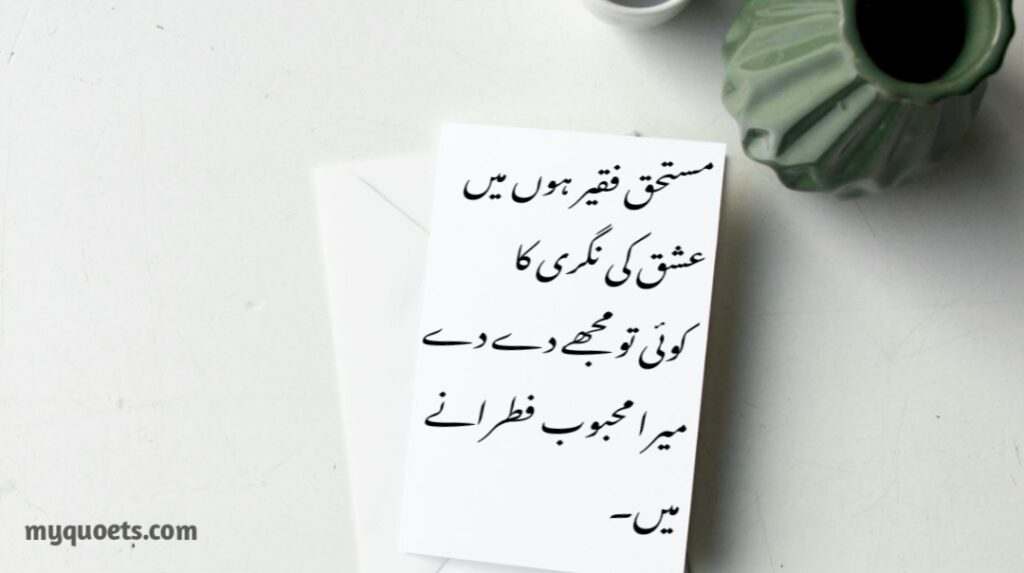 مستحق فقیر ہوں میں
عشق کی نگری کا
کوئی تو مجھے دے دے
میرا محبوب فطرانے
میں۔
myquoets.com